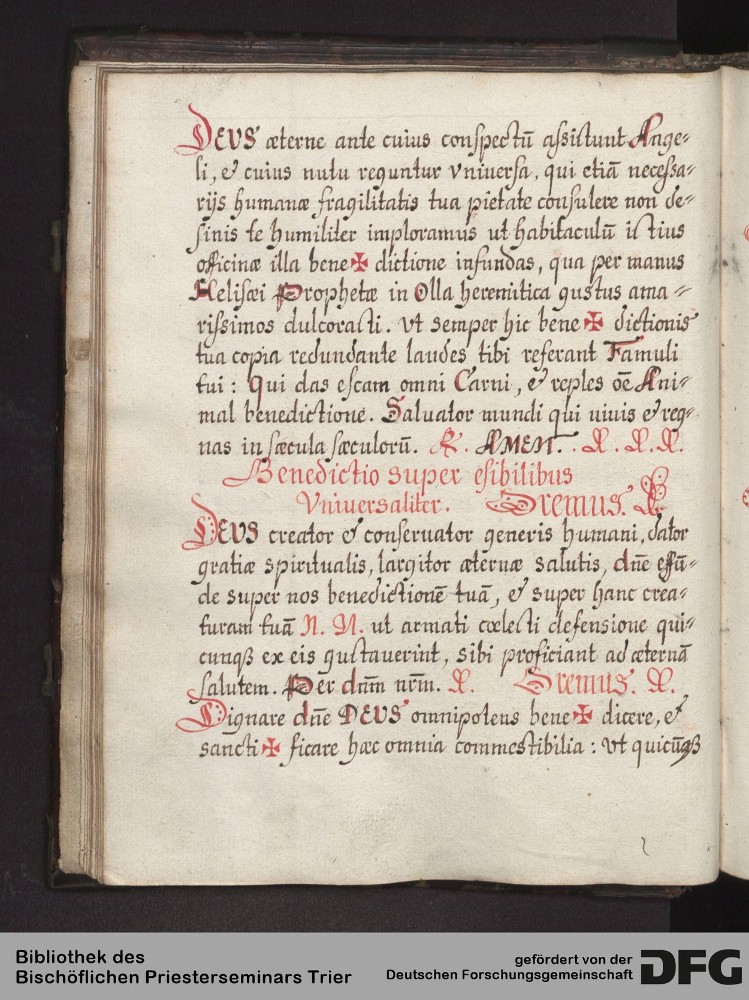 DEVS æterne ante cuius conspectū assistunt Ange=
li, & cuius nutu reguntur vniuersa, qui etiā necessa=
rijs humanæ fragilitatis tua pietate consulere non de=
sinis te humiliter imploramus ut habitaculū istius
officinæ illa bene✠ dictione infundas, qua per manus
Helisæi Prophetæ in Olla heremitica gustus ama=
rissimos dulcorasti. Vt semper hic bene✠ dictionis
tua copia redundante laudes tibi referant Famuli
tui: qui das escam omni Carni, & reples oē Ani=
mal benedictione. Saluator mundi qui uiuis & reg=
nas in sæcula sæculorū. ℟. AMEN. ℟. ℟. ℟.
Benedictio super esibilibus
Vniuersaliter. Oremus. ℟
DEVS creator & conseruator generis humani, dator
gratiæ spiritualis, largitor æternæ salutis, dn̄e effū=
de super nos benedictionē tuā, & super hanc crea=
turam tuā N. N. ut armati cœlesti defensione qui=
cunqꝫ ex eis gustauerint, sibi proficiant ad æternā
salutem. Per dn̄m nr̄m. ℟. Oremus. ℟.
Dignare dn̄e DEVS omnipotens bene✠ dicere, &
sancti✠ ficare hæc omnia commestibilia: Vt quicūqꝫ
Bibliothek des
Bischöflichen Priesterseminars Trier
gefördert von der
Deutschen Forschungsgemeinschaft
DFG